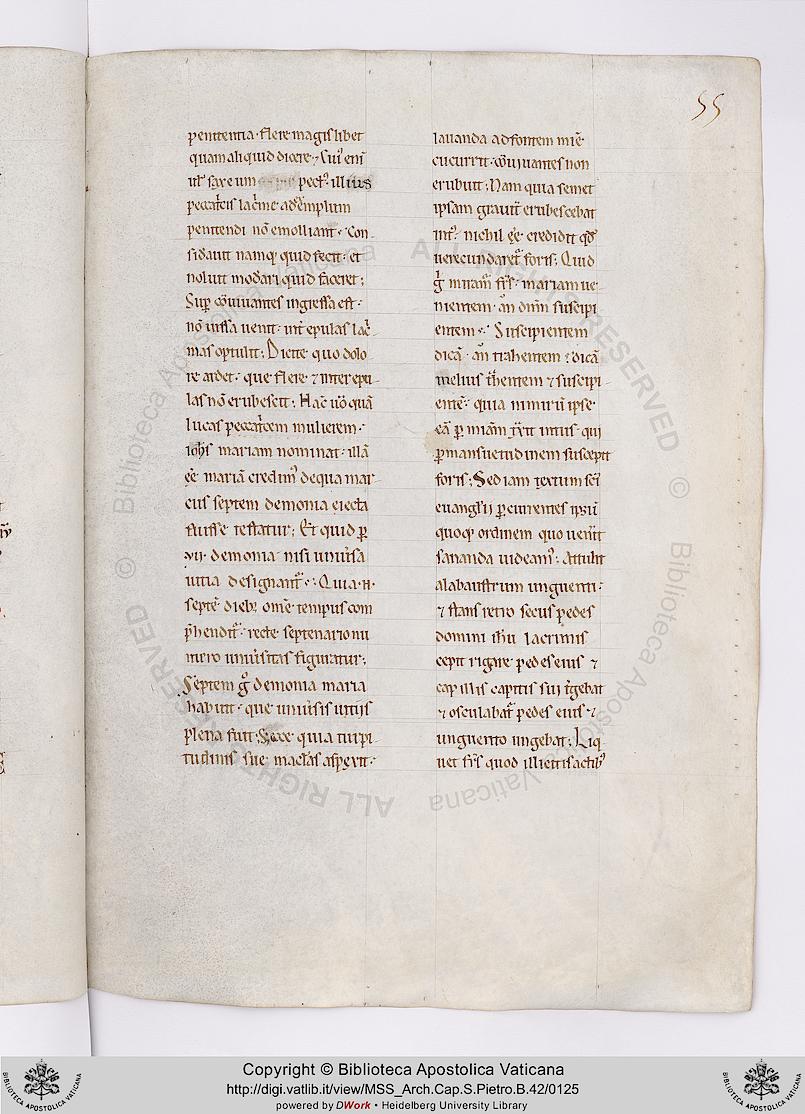 55
penitentia· flere magis libet
quam aliquid dicere· ⁊ Cui᷒ eni᷒
ul᷒ saxeum pect᷒· illius
peccat͛cis lac͛me ad exemplum
penitendi nō emolliant· Con
sid͛auit namq; quid fecit· et
noluit mod͛ari quid faceret;
Sup͛ cōuiuantes ingressa est·
nō iussa uenit· int͛ epulas lac͛
mas optulit; Discite quo dolo
re ardet· que flere ⁊ inter epu
las nō erubescit; Hāc u͛o quā
lucas peccat͛cem mulierem·
ioh͛s mariam nominat· illā
eē mariā credim᷒ de qua mar
cus septem demonia eiecta
fuisse testatur; Et quid p͛
vii· demonia nisi uniu͛sa
uitia designant᷒· Quia ·n·
septē dieb; omē tempus com
p͛hendit᷒· recte septenario nu
mero uniu͛sitas figuratur;
Septem g͛ demonia maria
habuit· que uniu͛sis uitiis
plena fuit· Sed ecce quia turpi
tudinis sue mac͛las aspexit·
lauanda ad fontem mi͛e
cucurrit· cōuiuantes non
erubuit; Nam quia semet
ipsam grauit͛ erubescebat
int᷒· nichil eē credidit qd͛
uerecundaret᷒ foris; Quid
g͛ miram᷒ fr͛s· mariam ue
nientem· an dn͛m suscipi
entem· Suscipientem
dicā· an trahentem? dicā
melius t͛hentem ⁊ suscipi
entē· quia nimirū ipse
eā p͛ mi͛am t͛xit intus· qui
p͛ mansuetudinem suscepit
foris; Sed iam textum sc͛i
euang͛lii p͛currentes ipsū
quoq; ordinem quo uen͛it
sananda uideam᷒· Attulit
alabaustrum unguenti·
⁊ stans retro secus pedes
domini ih͛u lacrimis
cepit rigare pedes eius ⁊
capillis capitis sui t͛gebat
⁊ osculabat᷒ pedes eius ⁊
unguento ungebat; Liq
uet fr͛s quod illicitis actib᷒
Copyright © Biblioteca Apostolica Vaticana
http://digi.vatlib.it/view/MSS_Arch.Cap.S.Pietro.B.42/0125
powered by DWork • Heidelberg University Library
BIBLIOTECA APOSTOLICA VATICANA
BIBLIOTECA APOSTOLICA VATICANA
ALL RIGHTS RESERVED © Biblioteca Apostolica Vaticana
ALL RIGHTS RESERVED © Biblioteca Apostolica Vaticana